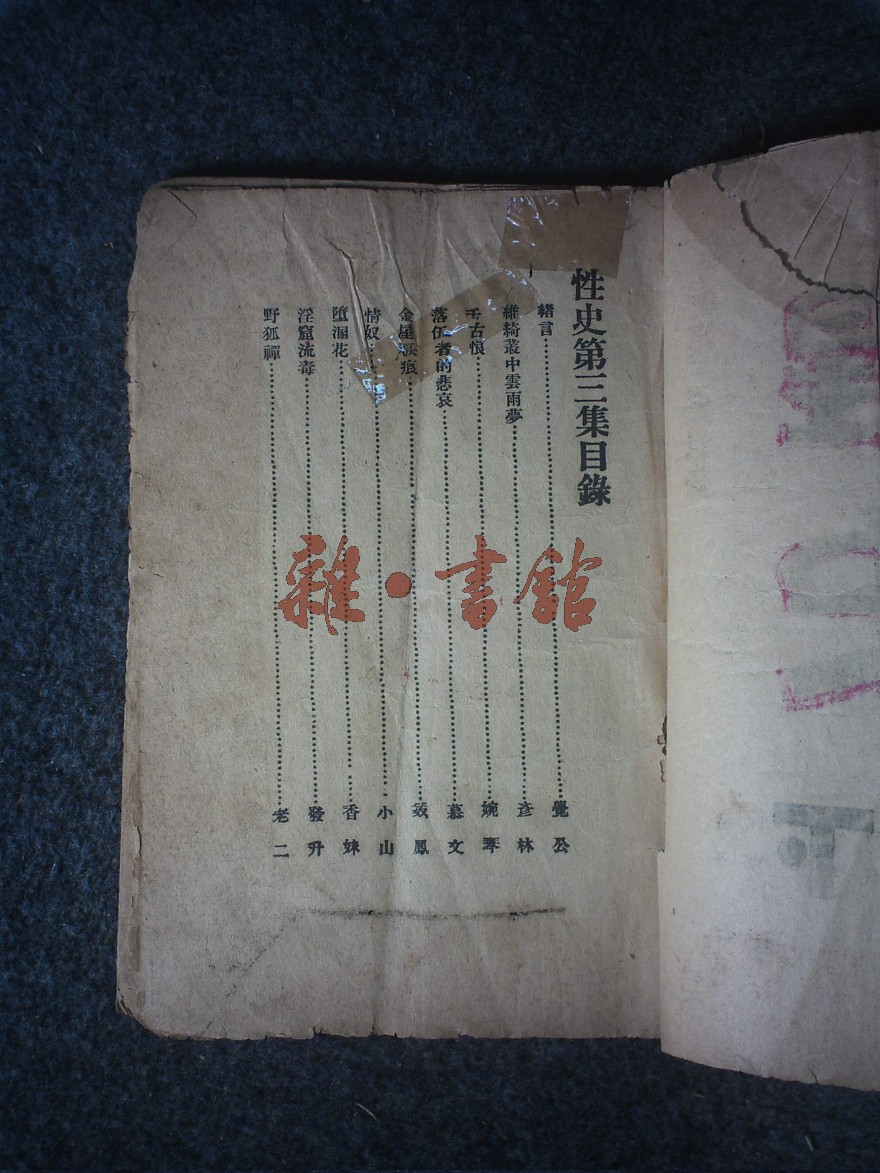 性史第三集目錄
緒言……覺公
維綺叢中雲雨夢……彥林
千古恨……婉琴
落伍者的悲哀……慕文
金屋淚痕……效鳳
情奴……小山
墮溷花……香妹
淫窟流毒……發升
野狐禪……老二
雜·書館